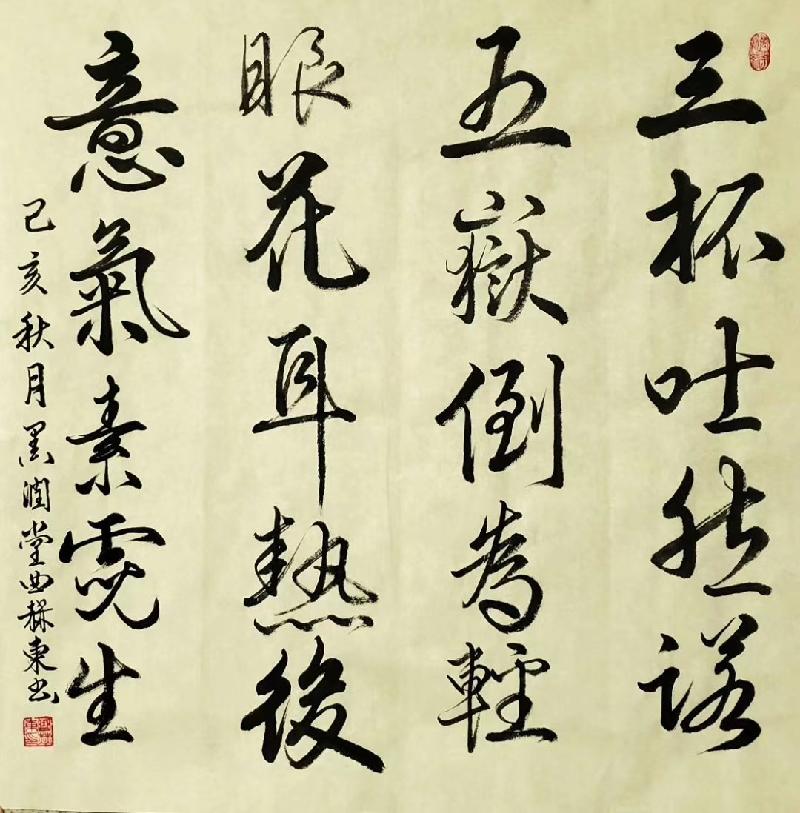 三杯吐然諾
五嶽倒為輕
眼花耳熱後
意氣素霓生
己亥秋月墨润堂曲赫東书